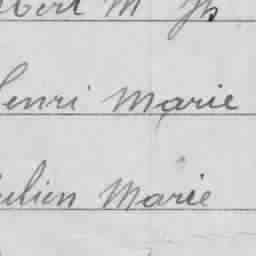 bert M Jh
Henri Marie
ulien Marie